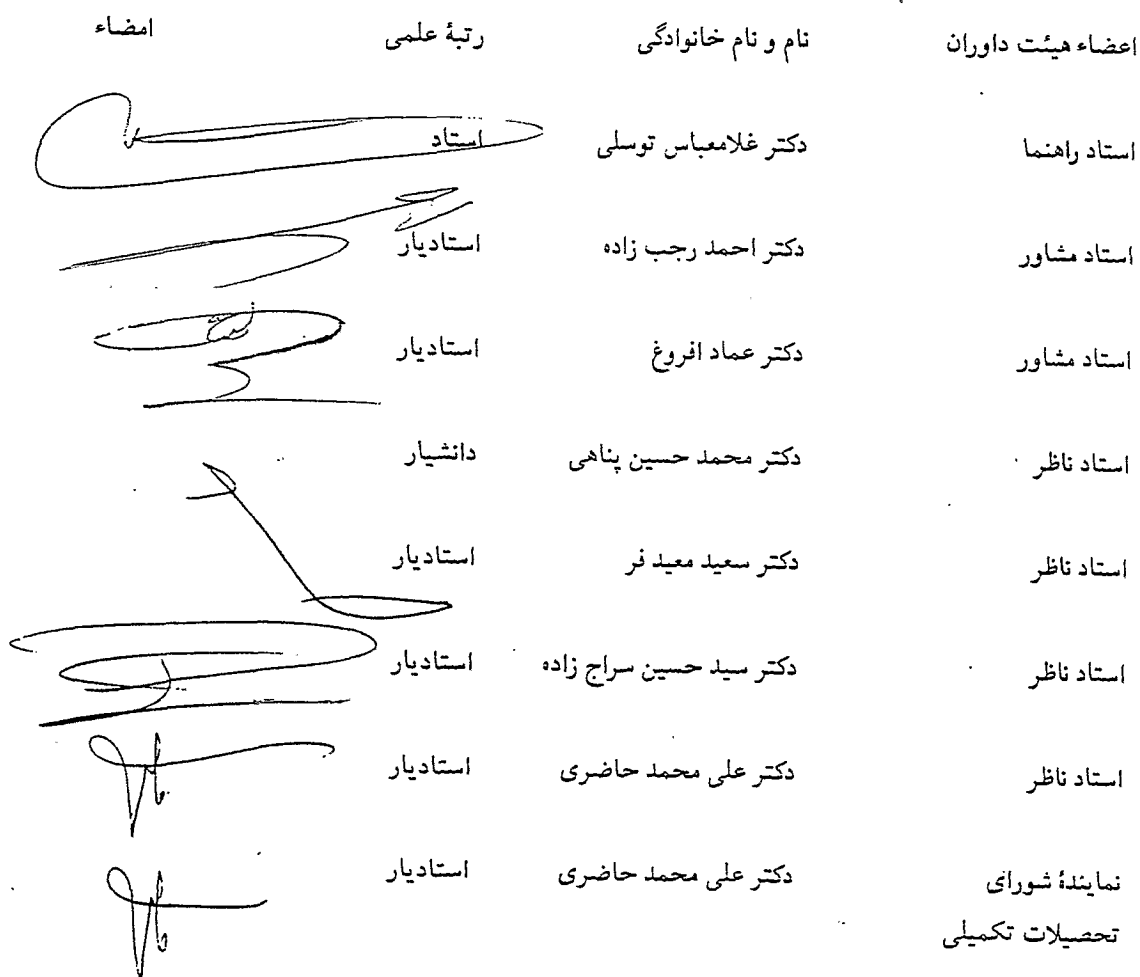 اعضاء هیئت داوران نام و نام خانوادگی رتبهٔ علمی امضاء
استاد راهنما دکتر غلامعباس توسلی استاد
استاد مشاور دکتر احمد رجب زاده استادیار
استاد مشاور دکتر عماد افروغ استادیار
استاد ناظر دکتر محمد حسین پناهی دانشیار
استاد ناظر دکتر سعید معید فر استادیار
استاد ناظر دکتر سید حسین سراج زاده استادیار
استاد ناظر دکتر علی محمد حاضری استادیار
نمایندهٔ شورای دکتر علی محمد حاضری استادیار
تحصیلات تکمیلی